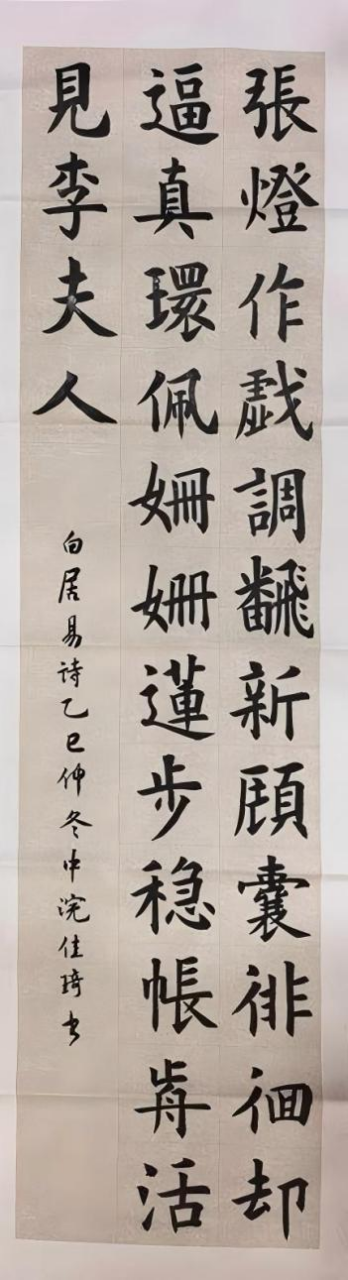 張燈作戱調飜新頋囊徘徊却
逼真環佩姍姍蓮步穏帳歬活
見李夫人
白居易诗乙巳仲冬中浣佳琦书